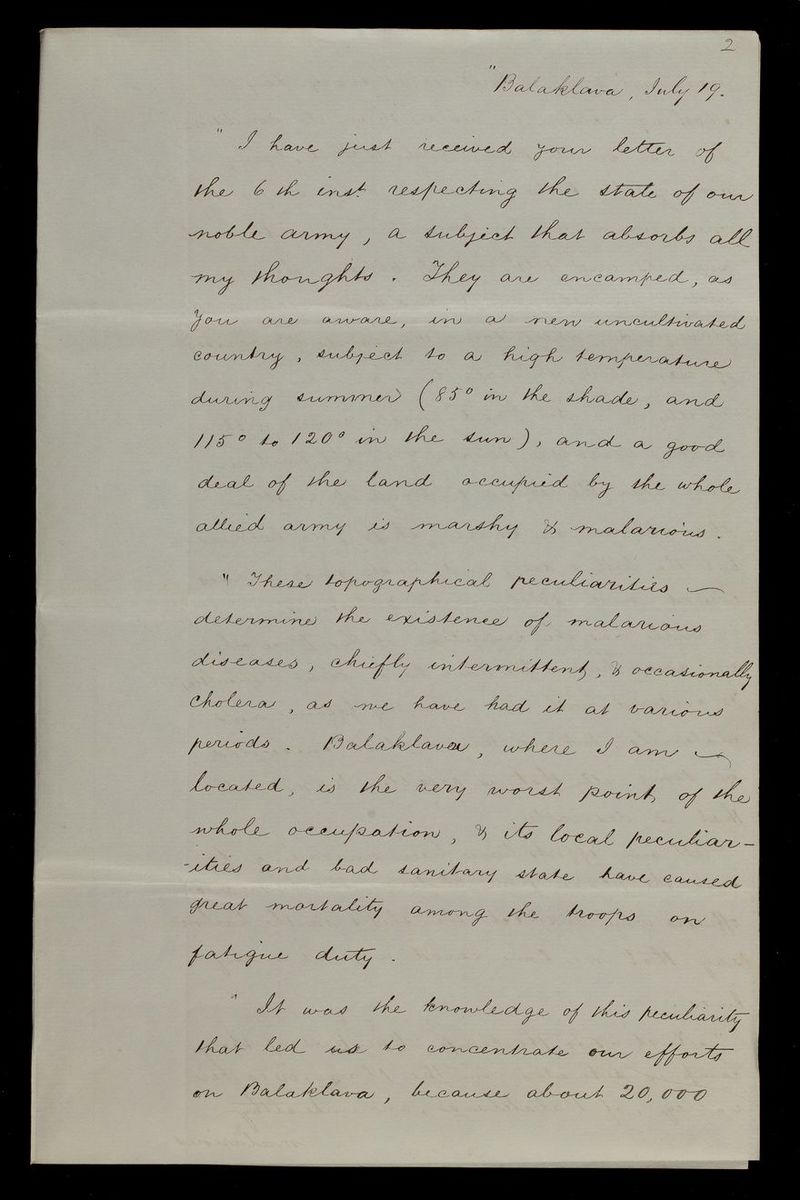 2
"Balaklava, July 19.
" I have just received your letter of
the 6th inst. respecting the state of our
noble army, a subject that absorbs all
my thoughts. They are encamped, as
you are aware, in a new uncultivated
country, subject to a high temperature
during summer (85° in the shade, and
115° to 120° in the sun), and a good
deal of the land occupied by the whole
allied army is marshy & malarious.
" These topographical peculiarities
determine the existence of malarious
diseases, chiefly intermittent, & occasionally
cholera, as we have had it at various
periods. Balaklava, where I am
located, is the very worst point of the
whole occupation, & its local peculiar-
-ities and bad sanitary state have caused
great mortality among the troops on
fatigue duty.
" It was the knowledge of this peculiarity
that led us to concentrate our efforts
on Balaklava, because about 20,000